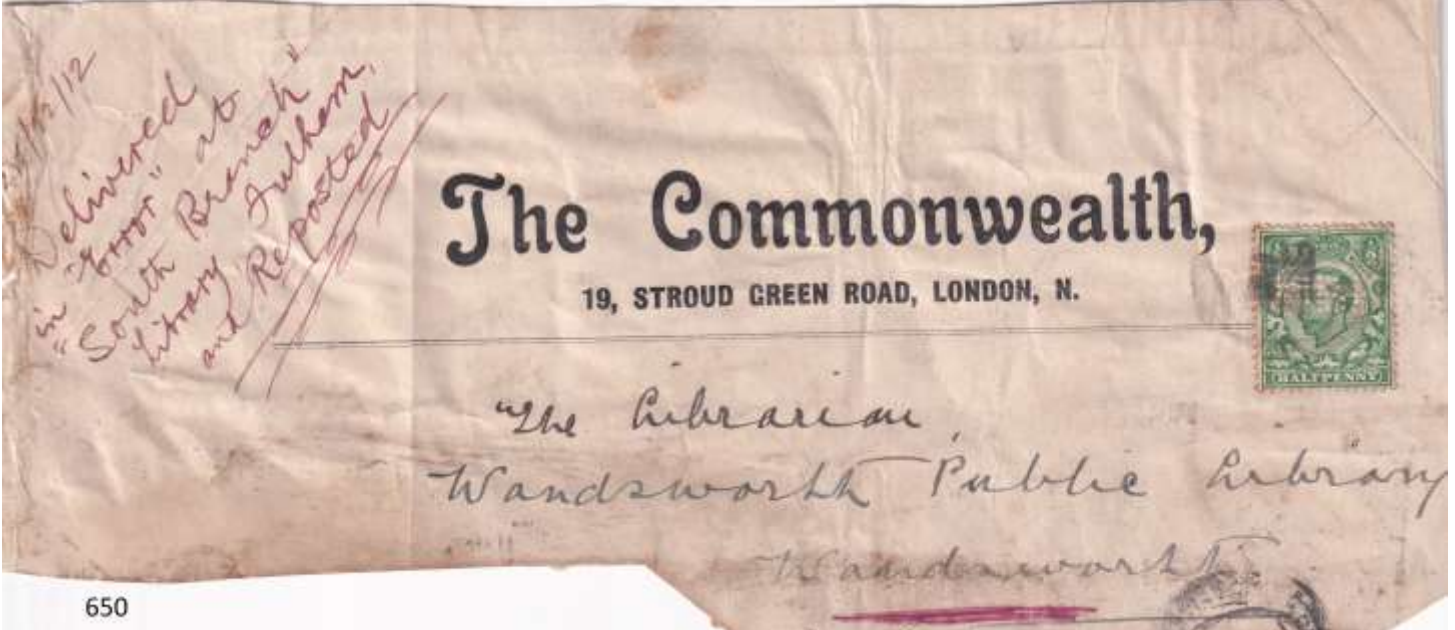 Delivered
in "Error" at
"South Branch"
Library Fulham,
and Reposted
The Commonwealth,
19, STROUD GREEN ROAD, LONDON, N.
HALFPENNY
The Librarian,
Wandsworth Public Library
Wandsworth
650